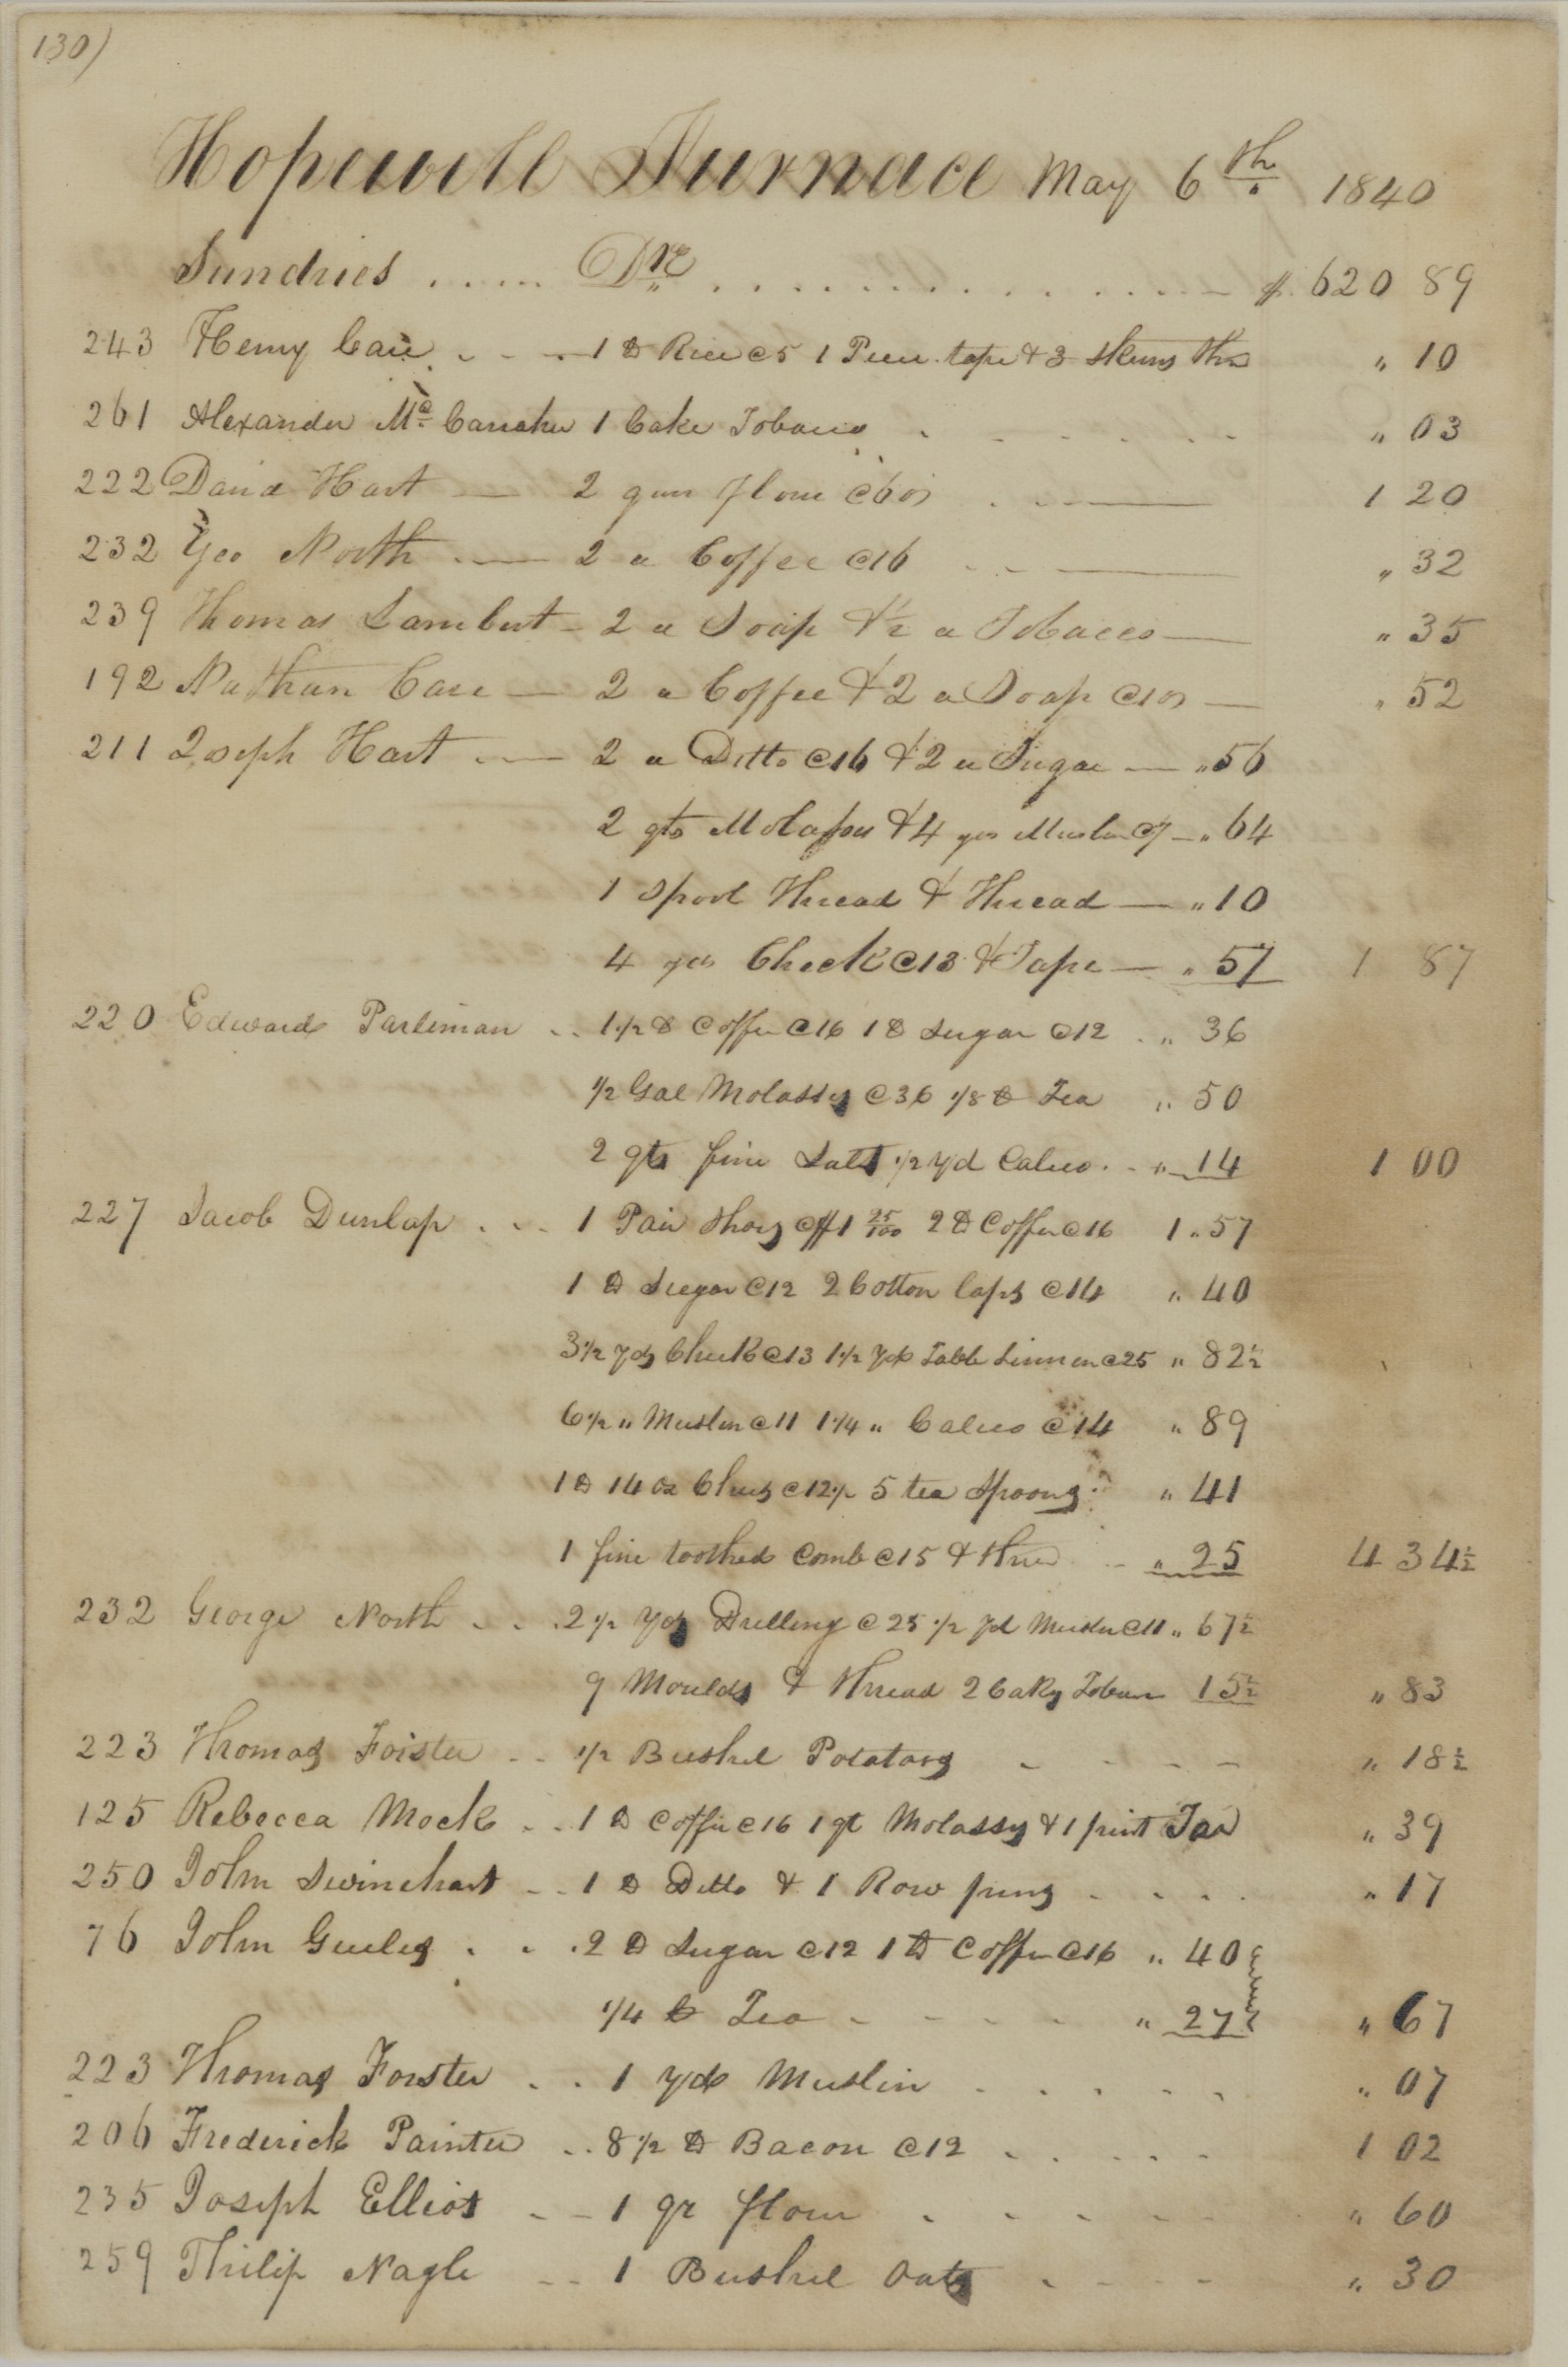 130)
Hopewell Furnace May 6th 1840
Sundries ..... Drs ............... $ 620 89
243 Henry Care . - - 1 lb Rice @5 1 Piece tape & 3 skeins thrd " 10
261 Alexander Mc Canaher 1 Cake Tobacco . - - - - - " 03
222 David Hart — 2 qurs flour @60s . . — 1 20
232 Geo North . — 2 lb Coffee @16 . . — " 32
239 Thomas Lambert - 2 lb Soap & ½ lb Tobacco — " 35
192 Nathan Care — 2 lb Coffee & 2 lb Soap @10s — " 52
211 Joseph Hart . — 2 lb Ditto @16 & 2 lb Sugar — " 56
2 qts Molasses & 4 yds Muslin @7 — " 64
1 Spool Thread & Thread — " 10
4 yds Check @13 & Tape — " 57 1 87
220 Edward Parliman .. 1½ lb Coffee @16 1 lb Sugar @12 . " 36
½ Gal Molasses @36 1/8 lb Tea " 50
2 qts fine Salt ½ yd Calico . - " 14 1 00
227 Jacob Dunlap . . . 1 Pair Shoes @$1 25/100 2 lb Coffee @16 1 " 57
1 lb Sugar @12 2 Cotton Caps @14 " 40
3½ yds Check @13 1½ yds Table Linnen @25 " 82½
6½ " Muslin @11 1¼ " Calico @14 " 89
1 lb 14 oz Chees @12½ 5 tea Spoons " 41
1 fine toothed Comb @15 & thrd . - " 25 4 34½
232 George North . . . 2½ yds Drilling @25 ½ yd Muslin @11 " 67½
9 Moulds & Thread 2 Cakes Tobacco 15½ " 83
223 Thomas Foister .. ½ Bushel Potatoes - - - - " 18½
125 Rebecca Mock . . 1 lb Coffee @16 1 qt Molasses & 1 pint Tar " 39
250 John Swinehart .. 1 lb Ditto & 1 Row pins . . . . " 17
76 John Guiles . . . 2 lb Sugar @12 1 lb Coffee @16 " 40
¼ lb Tea - - - - " 27 " 67
223 Thomas Forster . . 1 yds Muslin . . . . . " 07
206 Frederick Painter .. 8½ lb Bacon @12 . . . . . 1 02
235 Joseph Elliot - - 1 qr flour . . . . . " 60
259 Philip Nagle - - 1 Bushel Oats . - - - " 30